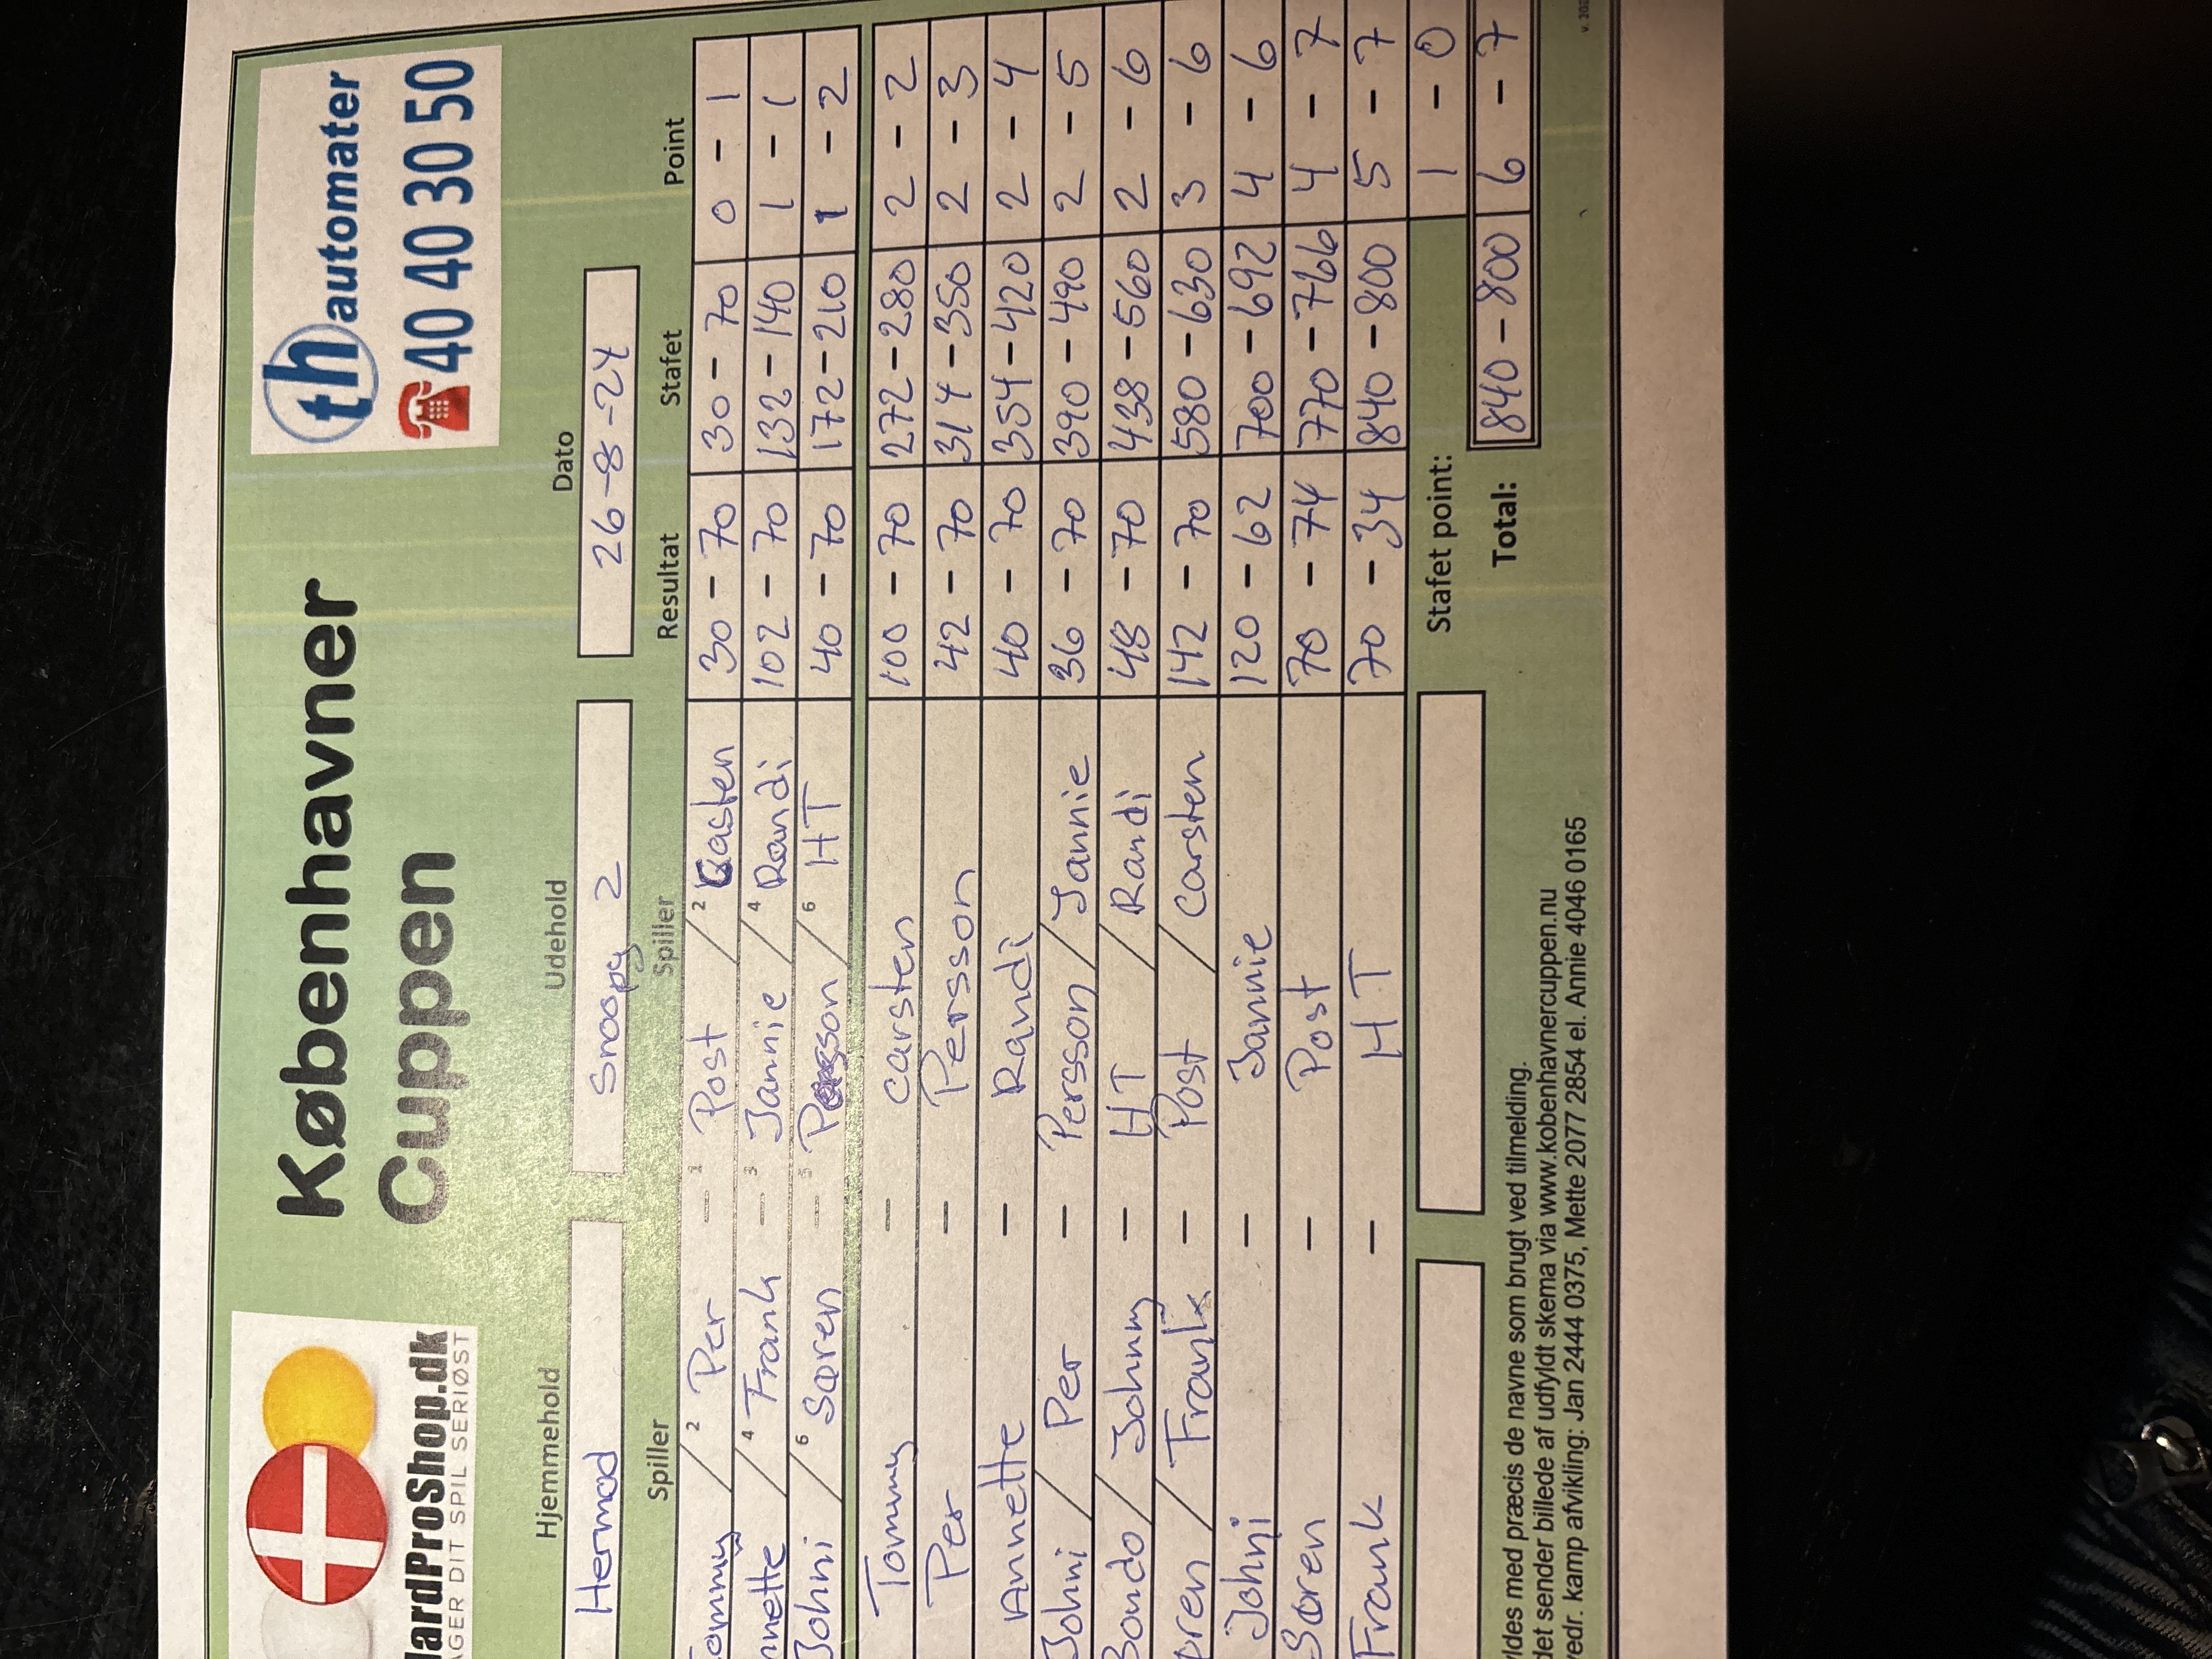 Københavner
Cuppen
lardProShop.dk
AGER DIT SPIL SERIØST
th automater
40 40 30 50
Hjemmehold Udehold Dato
Hermod Snoopy 2 26-8-24
Spiller Spiller Resultat Stafet Point
ommy / 2 Per - 1 Post / 2 Casten 30 - 70 30 - 70 0 - 1
nnette / 4 Frank - 3 Jannie / 4 Randi 102 - 70 132 - 140 1 - 1
Johni / 6 Søren - 5 Persson / 6 HT 40 - 70 172 - 210 1 - 2
Tommy - Carsten 100 - 70 272 - 280 2 - 2
Per - Persson 42 - 70 314 - 350 2 - 3
Annette - Randi 40 - 70 354 - 420 2 - 4
Johni / Per - Persson / Jannie 36 - 70 390 - 490 2 - 5
Bondo / Johnny - HT / Randi 48 - 70 438 - 560 2 - 6
øren / Frank - Post / Carsten 142 - 70 580 - 630 3 - 6
Johni - Jannie 120 - 62 700 - 692 4 - 6
Søren - Post 70 - 74 770 - 766 4 - 7
Frank - HT 70 - 34 840 - 800 5 - 7
Stafet point: 1 - 0
Total: 840 - 800 6 - 7
ldes med præcis de navne som brugt ved tilmelding.
det sender billede af udfyldt skema via www.kobenhavnercuppen.nu
vedr. kamp afvikling: Jan 2444 0375, Mette 2077 2854 el. Annie 4046 0165